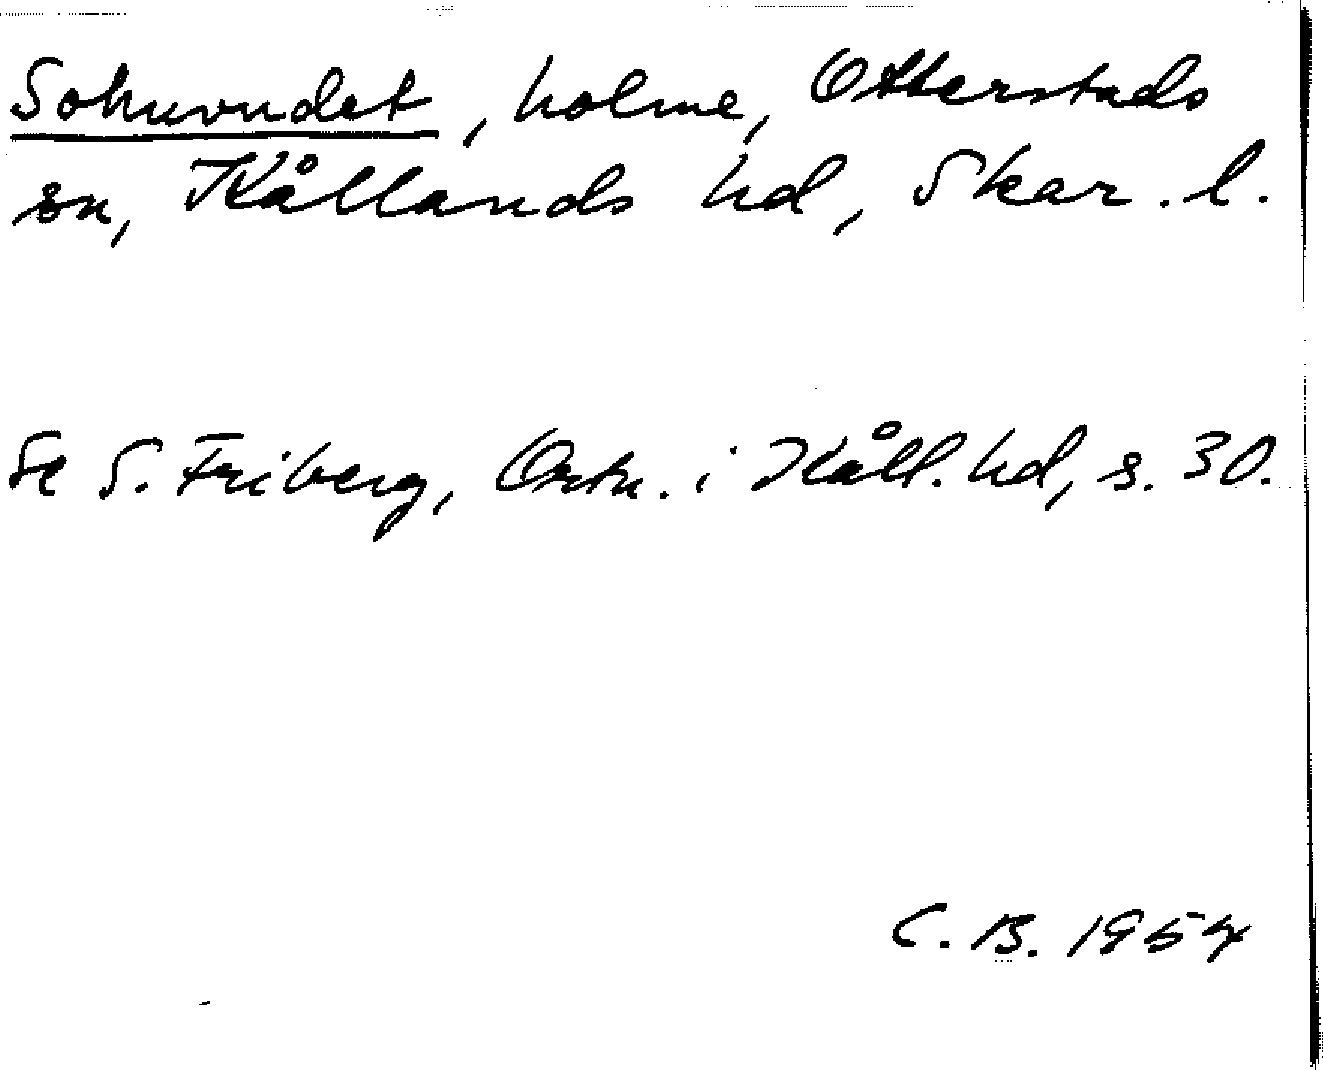 Sohuvudet, holme, Otterstads
sn, Kållands hd, Skar. l.
Se S. Friberg, Ortn. i Kåll. hd, s. 30.
C. B. 1954